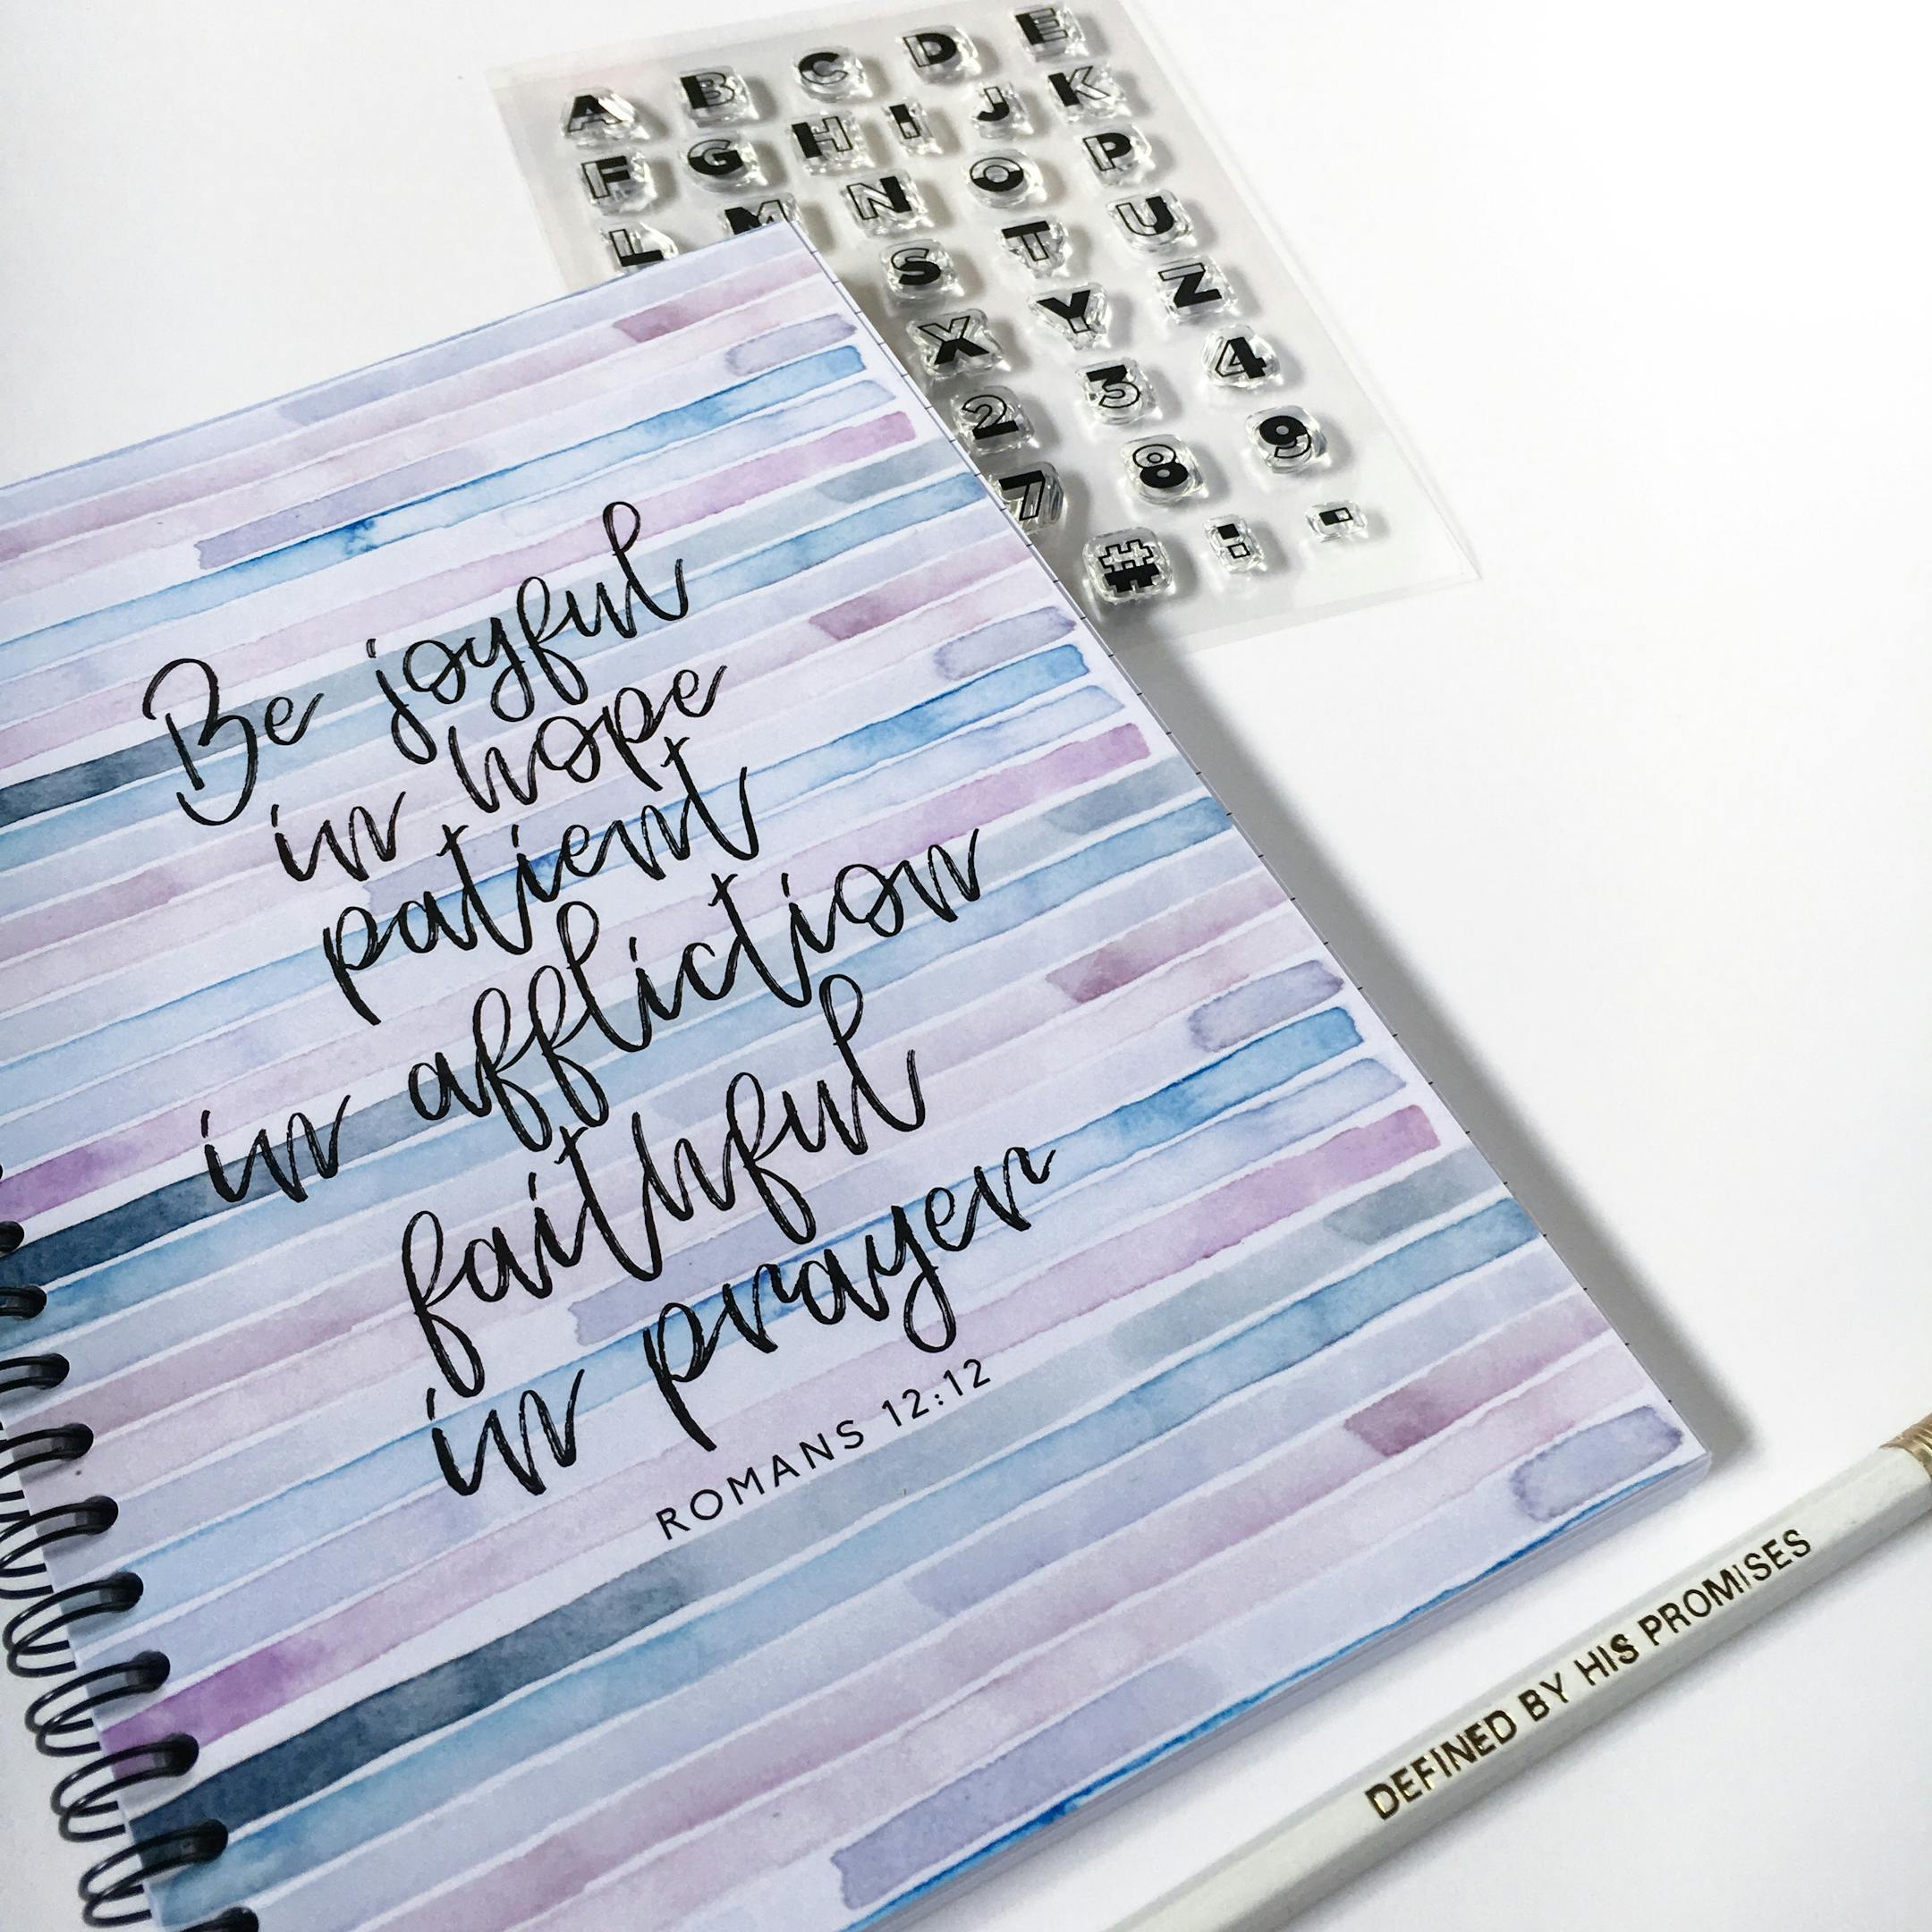 A B C D E
F G H I J K
L M N O P
S T U
X Y Z
2 3 4
7 8 9
# : -
Be joyful
in hope
patient
in affliction
faithful
in prayer
ROMANS 12:12
DEFINED BY HIS PROMISES